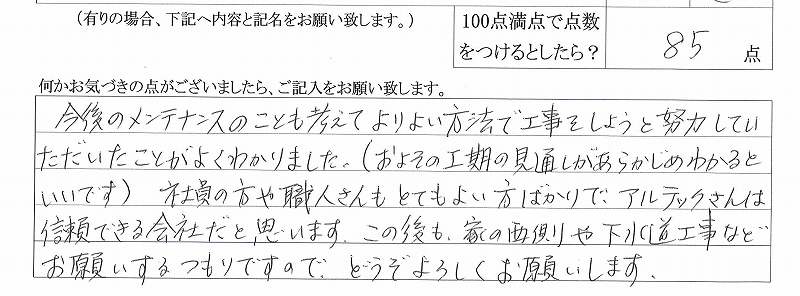 (有りの場合、下記へ内容と記名をお願い致します。)
100点満点で点数
をつけるとしたら?
85 点
何かお気づきの点がございましたら、ご記入をお願い致します。
今後のメンテナンスのことも考えてよりよい方法で工事をしようと努力してい
ただいたことがよくわかりました。(およその工期の見通しがあらかじめわかると
いいです) 社員の方や職人さんもとてもよい方ばかりで、アルテックさんは
信頼できる会社だと思います。この後も、家の西側や下水道工事など
お願いするつもりですので、どうぞよろしくお願いします。